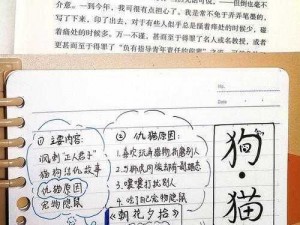 介意。一到今年，我可很有点担心了。我是常不免于弄弄笔墨的，
写了下来，印了出去，对于有些人似乎总是搔着痒处的时候少，碰
着痛处的时候多。万一不谨，甚而至于得罪了名人或名教授，或者
更甚而至于得罪了“负有指导青年责任的前辈”之流，
① 主要内容:
讽刺"正人君子"
猫狗结仇故事
仇猫原因
宠物隐鼠
② 仇猫原因:
1.喜欢玩弄猎物折磨别人
2.与狮虎同族却有媚态
3.嚎叫打扰别人
4.吃了自己宠物隐鼠
《朝花夕拾》
狗
·
猫